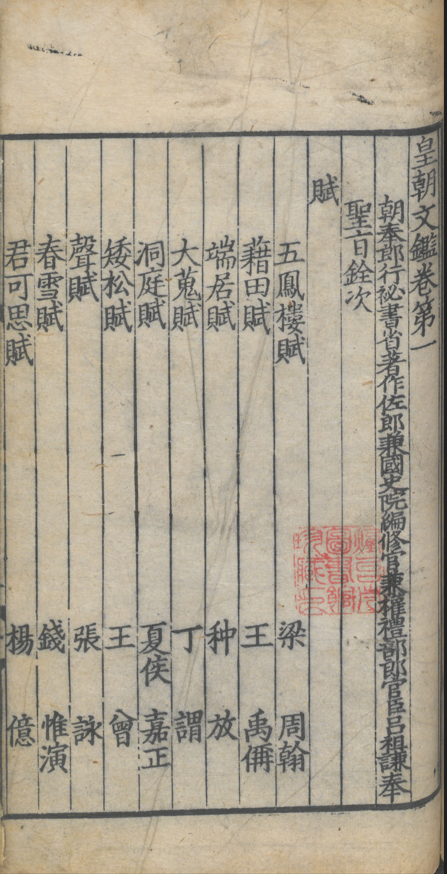 皇朝文鑑卷第一
朝奉郎行祕書省著作佐郎兼國史院編修官兼權禮部郎官臣呂祖謙奉
聖旨銓次
賦
五鳳樓賦 梁周翰
藉田賦 王禹偁
端居賦 种放
大蒐賦 丁謂
洞庭賦 夏侯嘉正
矮松賦 王曾
聲賦 張詠
春雪賦 錢惟演
君可思賦 楊億